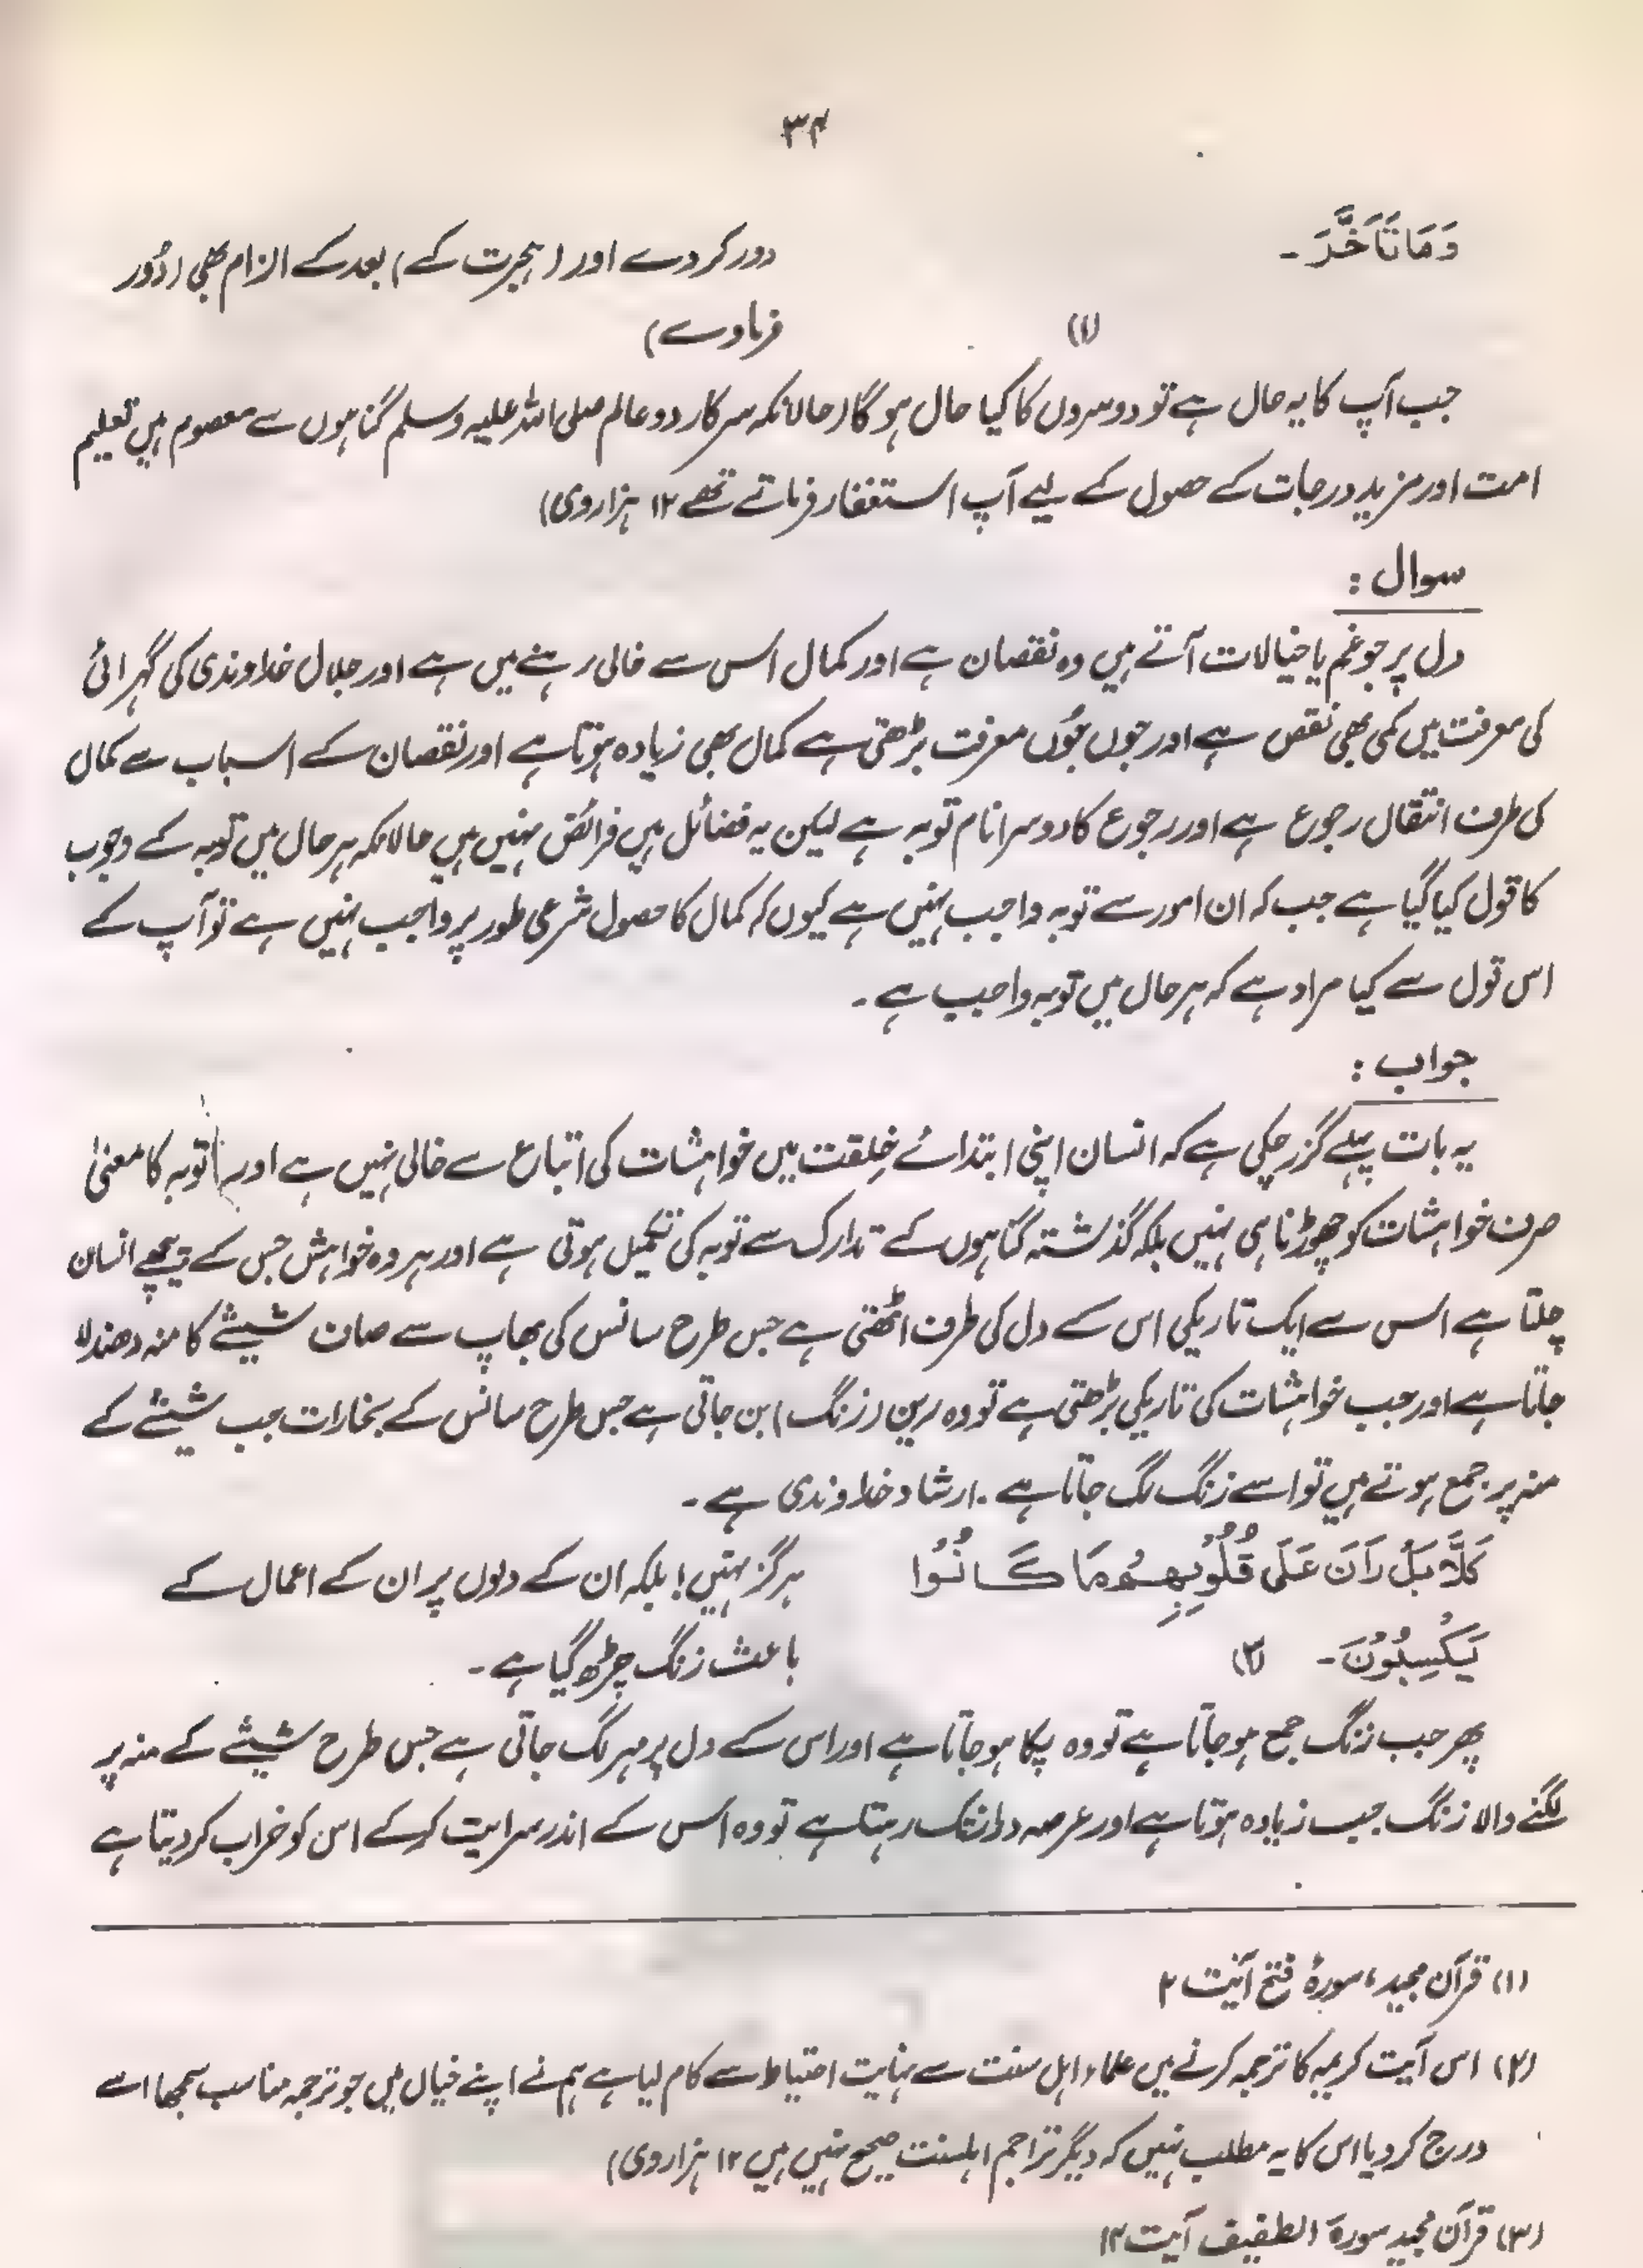 ۳۴
وَمَا تَأَخَّرَ۔
دور کر دے اور (ہجرت کے) بعد کے الزام بھی (دُور
فرما دے)
(۱)
جب آپ کا یہ حال ہے تو دوسروں کا کیا حال ہو گا (حالانکہ سرکار دو عالم صلی اللہ علیہ وسلم گناہوں سے معصوم ہیں تعلیم
امت اور مزید درجات کے حصول کے لیے آپ استغفار فرماتے تھے ۱۲ ہزاروی)
سوال :
دل پر جو غم یا خیالات آتے ہیں وہ نقصان ہے اور کمال اس سے خالی رہنے میں ہے اور جلال خداوندی کی گہرائی
کی معرفت میں کمی بھی نقص ہے اور جوں جُوں معرفت بڑھتی ہے کمال بھی زیادہ ہوتا ہے اور نقصان کے اسباب سے کمال
کی طرف انتقال رجوع ہے اور رجوع کا دوسرا نام توبہ ہے لیکن یہ فضائل ہیں فرائض نہیں ہیں حالانکہ ہر حال میں توبہ کے وجوب
کا قول کیا گیا ہے جب کہ ان امور سے توبہ واجب نہیں ہے کیوں کہ کمال کا حصول شرعی طور پر واجب نہیں ہے تو آپ کے
اس قول سے کیا مراد ہے کہ ہر حال میں توبہ واجب ہے۔
جواب :
یہ بات پہلے گزر چکی ہے کہ انسان اپنی ابتدائے خِلقت میں خواہشات کی اتباع سے خالی نہیں ہے اور توبہ کا معنیٰ
صرف خواہشات کو چھوڑنا ہی نہیں بلکہ گذشتہ گناہوں کے تدارک سے توبہ کی تکمیل ہوتی ہے اور ہر وہ خواہش جس کے پیچھے انسان
چلتا ہے اس سے ایک تاریکی اس کے دل کی طرف اٹھتی ہے جس طرح سانس کی بھاپ سے صاف شیشے کا منہ دھندلا
جاتا ہے اور جب خواہشات کی تاریکی بڑھتی ہے تو وہ رین (زنگ) بن جاتی ہے جس طرح سانس کے بخارات جب شیشے کے
منہ پر جمع ہوتے ہیں تو اسے زنگ لگ جاتا ہے۔ ارشاد خداوندی ہے۔
كَلَّا بَلْ رَانَ عَلَى قُلُوْبِهِمْ مَا كَانُوْا
يَكْسِبُوْنَ۔ (۳)
ہرگز نہیں! بلکہ ان کے دلوں پر ان کے اعمال کے
باعث زنگ چڑھ گیا ہے۔
پھر جب زنگ جمع ہو جاتا ہے تو وہ پکا ہو جاتا ہے اور اس کے دل پر مہر لگ جاتی ہے جس طرح شیشے کے منہ پر
لگنے والا زنگ جب زیادہ ہوتا ہے اور عرصہ دراز تک رہتا ہے تو وہ اس کے اندر سرایت کر کے اس کو خراب کر دیتا ہے
(۱) قرآن مجید، سورۂ فتح آیت ۲
(۲) اس آیت کریمہ کا ترجمہ کرنے میں علماء اہل سنت سے نہایت احتیاط سے کام لیا ہے ہم نے اپنے خیال میں جو ترجمہ مناسب سمجھا اسے
درج کر دیا اس کا یہ مطلب نہیں کہ دیگر تراجم اہلسنت صحیح نہیں ہیں ۱۲ ہزاروی)
(۳) قرآن مجید سورۃ الطفیف آیت ۱۴